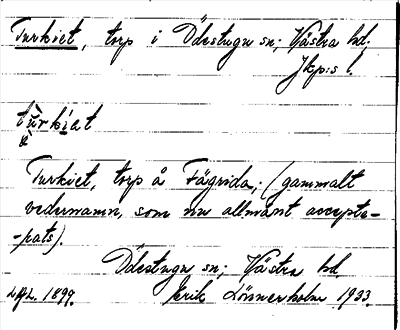 Turkiet, torp i Ödestugu sn; Västra hd.
Jkp:s l.
turkiat
Turkiet, torp å Fägrida; (gammalt
vedernamn, som nu allmänt accepte-
-rats).
Ödestugu sn; Västra hd
1899. Erik Lönnerholm 1933.